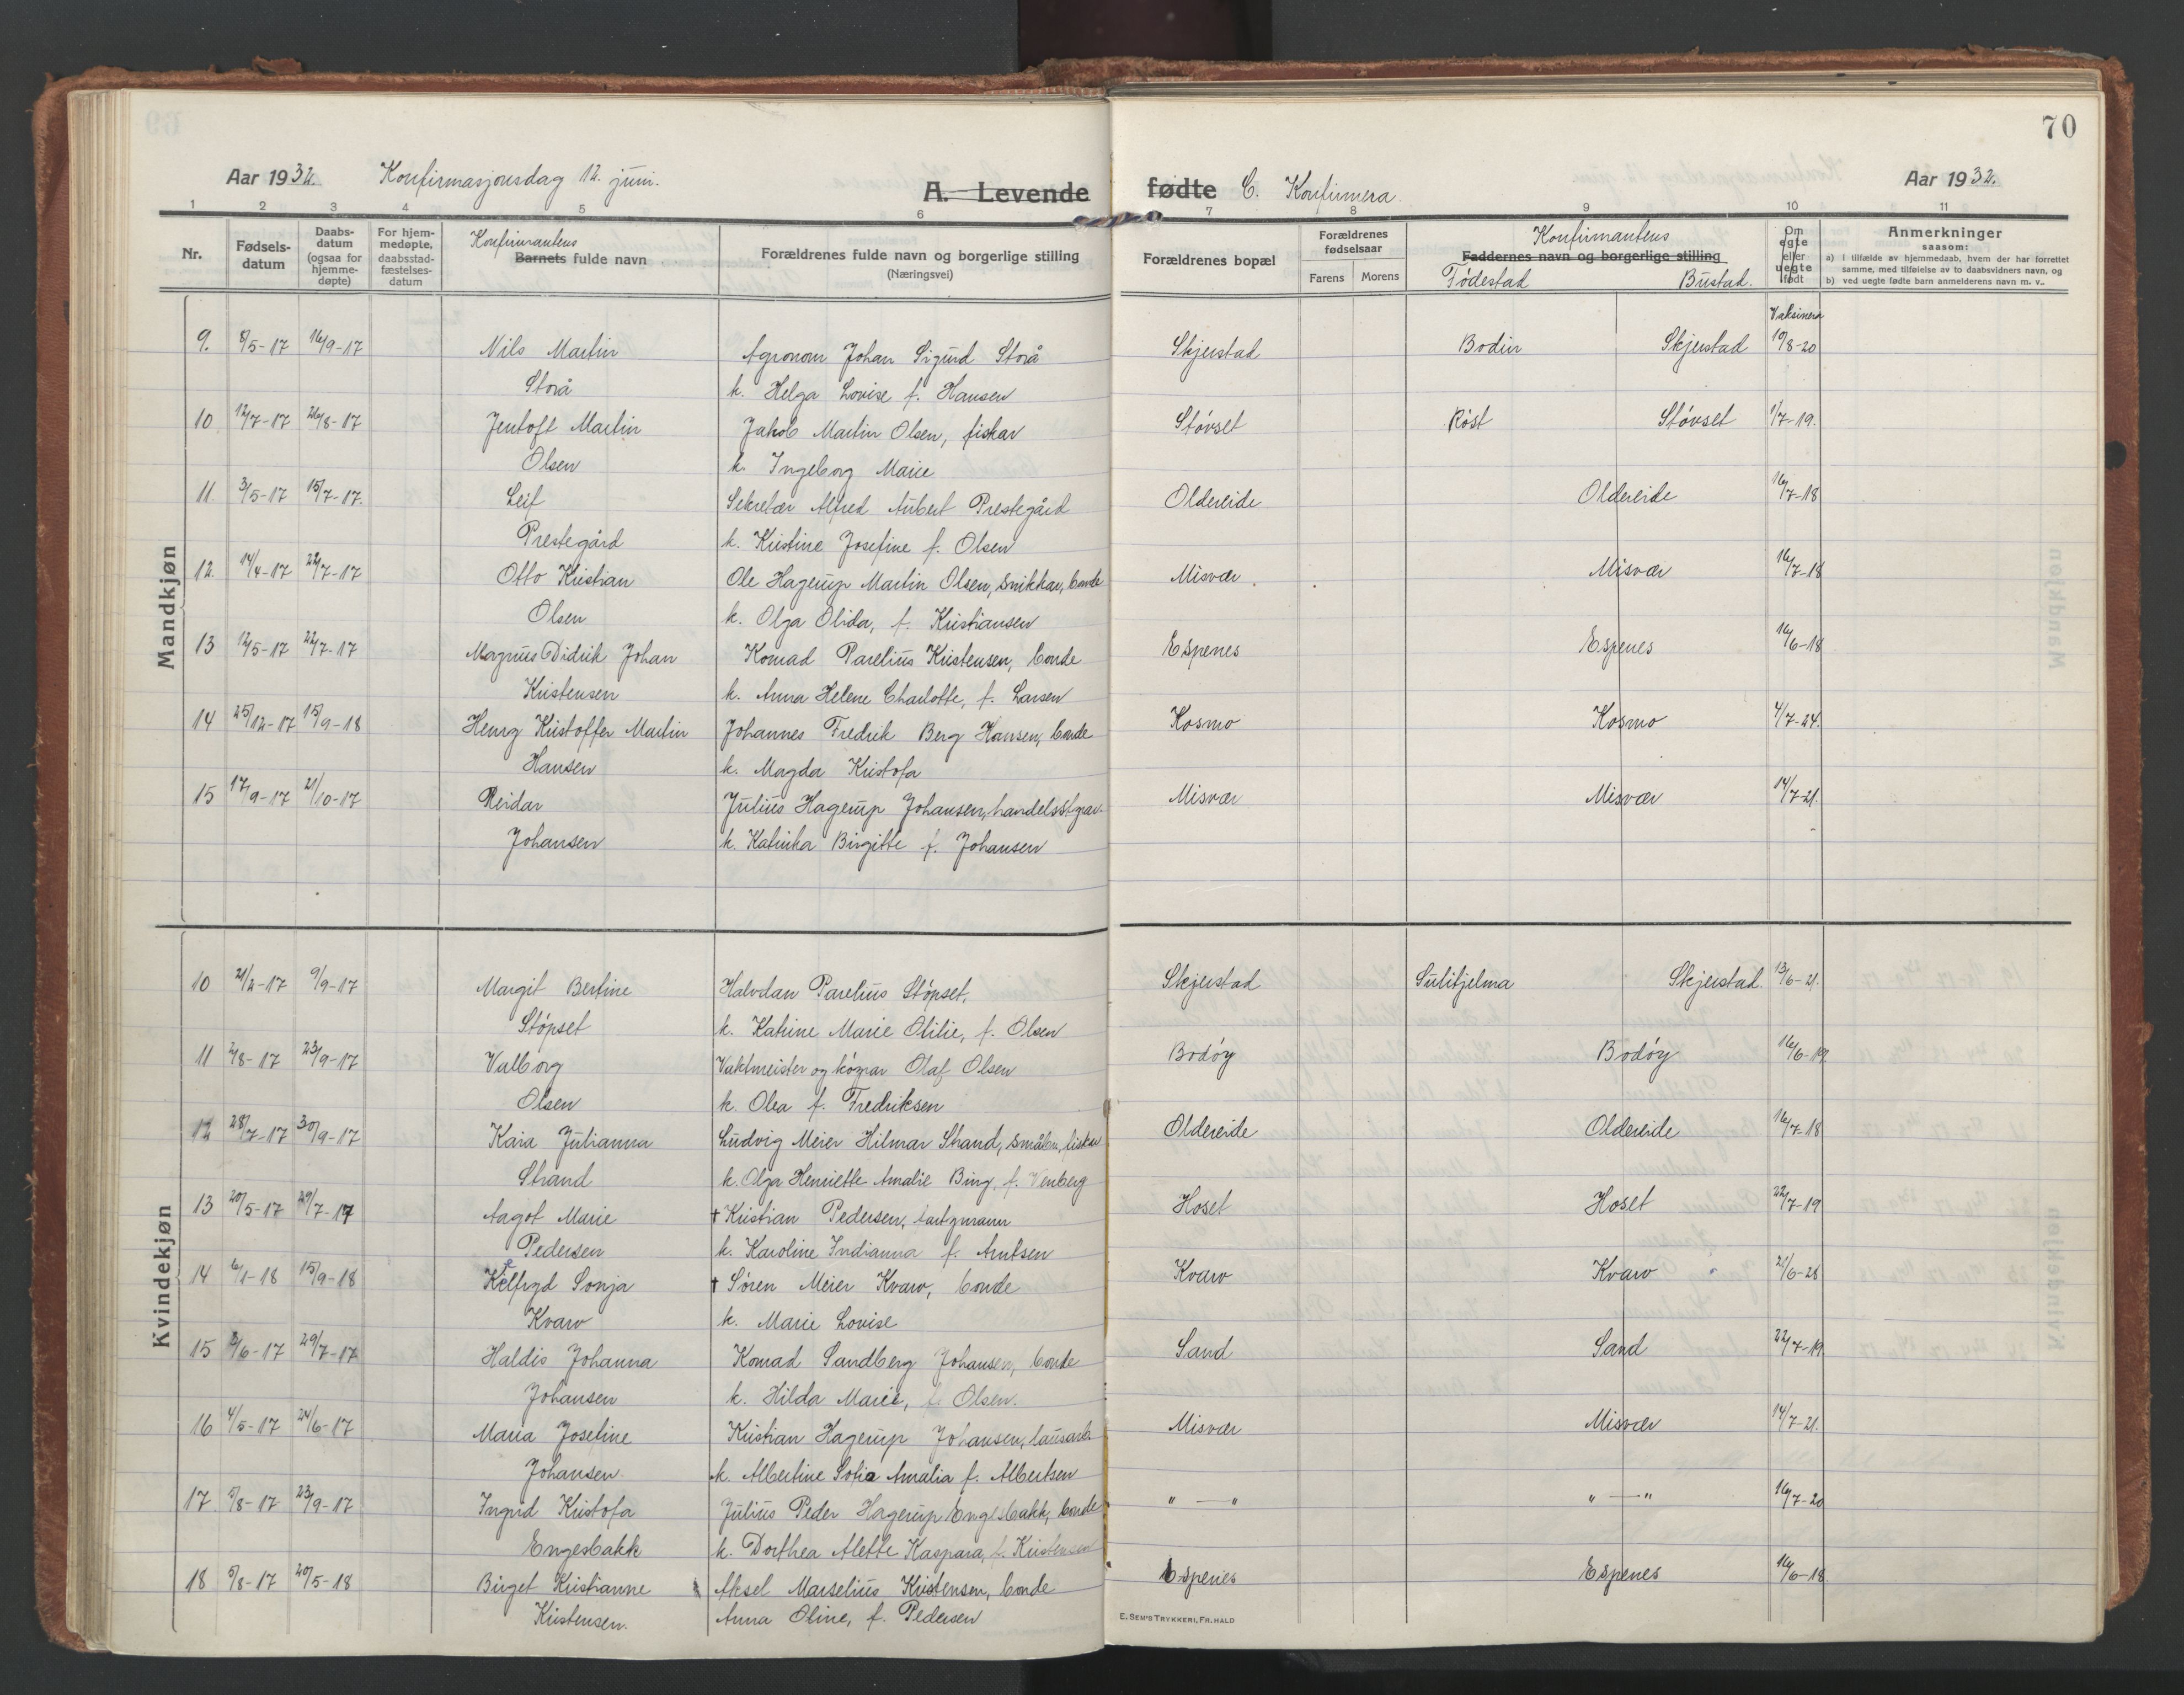 70
Aar 1932. Konfirmasjonsdag 12. juni. A. Levende fødte C. Konfirmera. Aar 1932.
1 2 3 4 5 6 7 8 9 10 11
Nr. Fødselsdatum Daabsdatum (ogsaa for hjemmedøpte) For hjemmedøpte, daabsstadfæstelsesdatum Konfirmantens Barnets fulde navn Forældrenes fulde navn og borgerlige stilling (Næringsvei) Forældrenes bopæl Forældrenes fødselsaar Farens Morens Konfirmantens Faddernes navn og borgerlige stilling Fødestad Bustad. Om egte eller uegte født Anmerkninger saasom:
a) i tilfælde av hjemmedaab, hvem der har forrettet samme, med tilføielse av to daabsvidners navn, og
b) ved uegte fødte barn anmelderens navn m. v..
Vaksinera
Mandkjøn
9. 8/5-17 16/9-17 Nils Martin Agronom Johan Sigurd Storå Skjerstad Bodin Skjerstad 10/8-20
Storå k. Helga Lovise f. Hansen
10 12/7-17 26/8-17 Jentoft Martin Jakob Martin Olsen, fiskar Støvset Røst Støvset 1/7-19.
Olsen k. Ingeborg Marie
11. 3/5-17 15/7-17. Leif Sekretær Alfred Aubert Prestegård Oldereide Oldereide 16/7-18
Prestegård k. Kristine Josefine f. Olsen
12. 14/4-17 22/7-17 Otto Kristian Ole Hagerup Martin Olsen, snikkar, bonde Misvær Misvær 16/7-18
Olsen k. Olga Olida, f. Kristiansen
13 12/5-17 22/7-17 Magnus Didrik Johan Konrad Parelius Kristensen, bonde Espenes Espenes 16/6-18
Kristensen k. Anna Helene Charlotte, f. Larsen
14 25/12-17 15/9-18 Henry Kristoffer Martin Johannes Fredrik Berg Hansen, bonde Kosmo Kosmo 4/7-24.
Hansen k. Magda Kristofa
15 17/9-17 21/10-17 Reidar Julius Hagerup Johansen, handelsstyrar. Misvær Misvær 14/7-21.
Johansen k. Katinka Birgitte f. Johansen
Kvindekjøn
10 21/2-17 9/9-17 Margit Bertine Halvdan Parelius Støpset, Skjerstad Sulitjelma Skjerstad. 13/6-21.
Støpset k. Katrine Marie Otilie, f. Olsen
11 2/8-17 23/9-17 Valborg Vaktmeister og Olaf Olsen Bodøy Bodøy 16/6-19
Olsen k. Olea f. Fredriksen
12 28/7-17 30/9-17 Kaia Julianna Ludvig Meier Hilmar Strand, småbr., fiskar Oldereide Oldereide 16/7-18
Strand k. Olga Henriette Amalie Bing, f. Venberg
13 20/5-17 29/7-17 Aagot Marie † Kristian Pedersen, Hoset Hoset 22/7-19
Pedersen k. Karoline Indianna f. Arntsen
14 6/1-18 15/9-18 Kelfryd Sonja † Søren Meier Kvarv, bonde Kvarv Kvarv 21/6-28
Kvarv k. Marie Lovise
15 3/6-17 29/7-17 Haldis Johanna Konrad Sandberg Johansen, bonde Sand Sand 22/7-19.
Johansen k. Hilda Marie, f. Olsen.
16 4/5-17 24/6-17 Maria Josefine Kristian Hagerup Johansen, lausarb. Misvær Misvær 14/7-21.
Johansen. k. Albertine Sofie Amalia f. Albertsen
17 5/8-17 23/9-17 Ingrid Kristofa Julius Peder Hagerup Engesbakk, bonde " — " " — " 16/7-20
Engesbakk k. Dorthea Alette Kaspara, f. Kristensen
18 5/8-17 20/5-18 Birget Kristianne Aksel Marselius Kristensen, bonde Espenes Espenes 16/6-18
Kristensen. Anna Oline, f. Pedersen
E. SEM'S TRYKKERI, FR.HALD